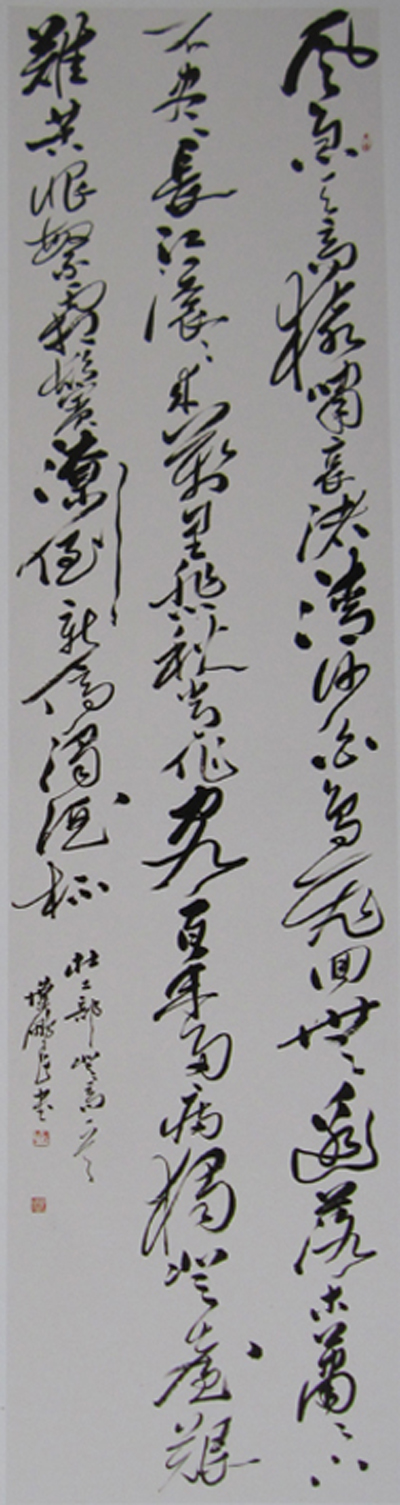 風急天高猿嘯哀渚清沙白鳥飛回無邊落木蕭〻下
不盡長江滾〻來萬里悲秋常作客百年多病獨登臺艱
難苦恨繁霜鬢潦倒新停濁酒杯
杜工部登高一首
書